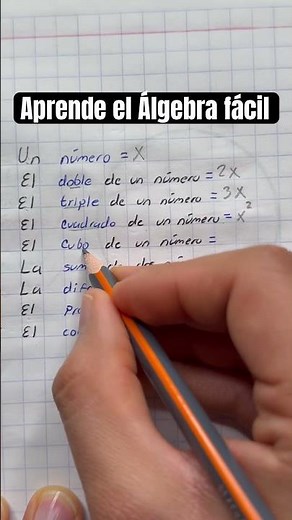 Aprende el Álgebra fácil
Un número = X
El doble de un número = 2X
El triple de un número = 3X
El cuadrado de un número = X²
El cubo de un número =
La
La
El
El